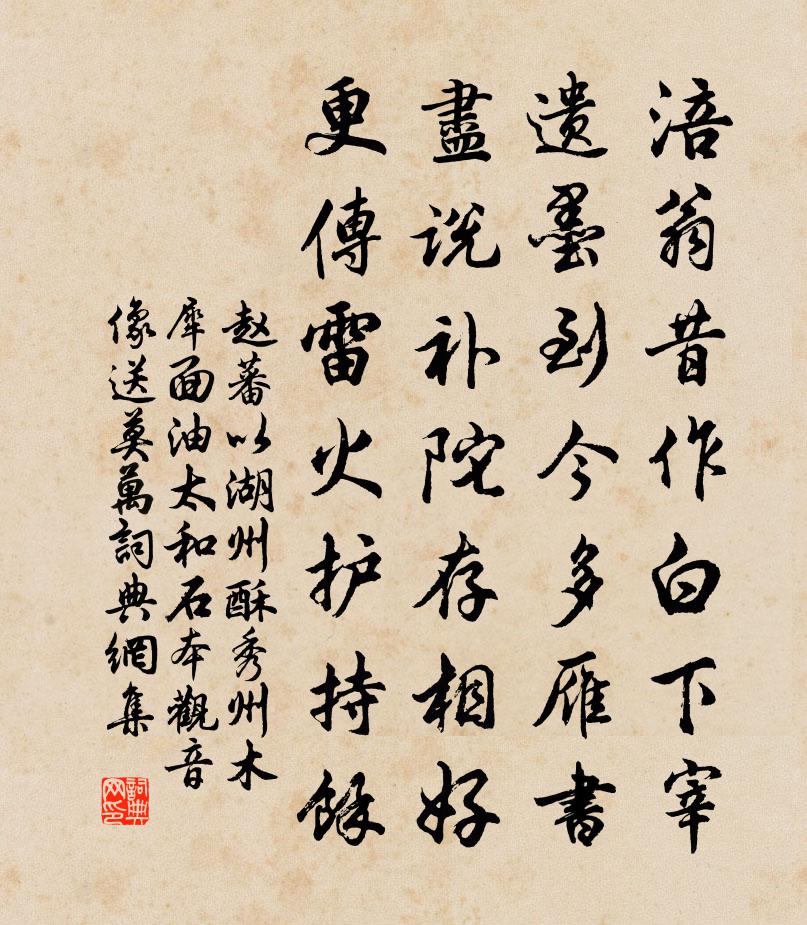 涪翁昔作白下宰
遗墨到今多雁書
盡说补陀存相好
更傳雷火护持餘
赵蕃以湖州酥秀州木
犀面油太和石本觀音
像送莫萬詞典網集
詞典网印